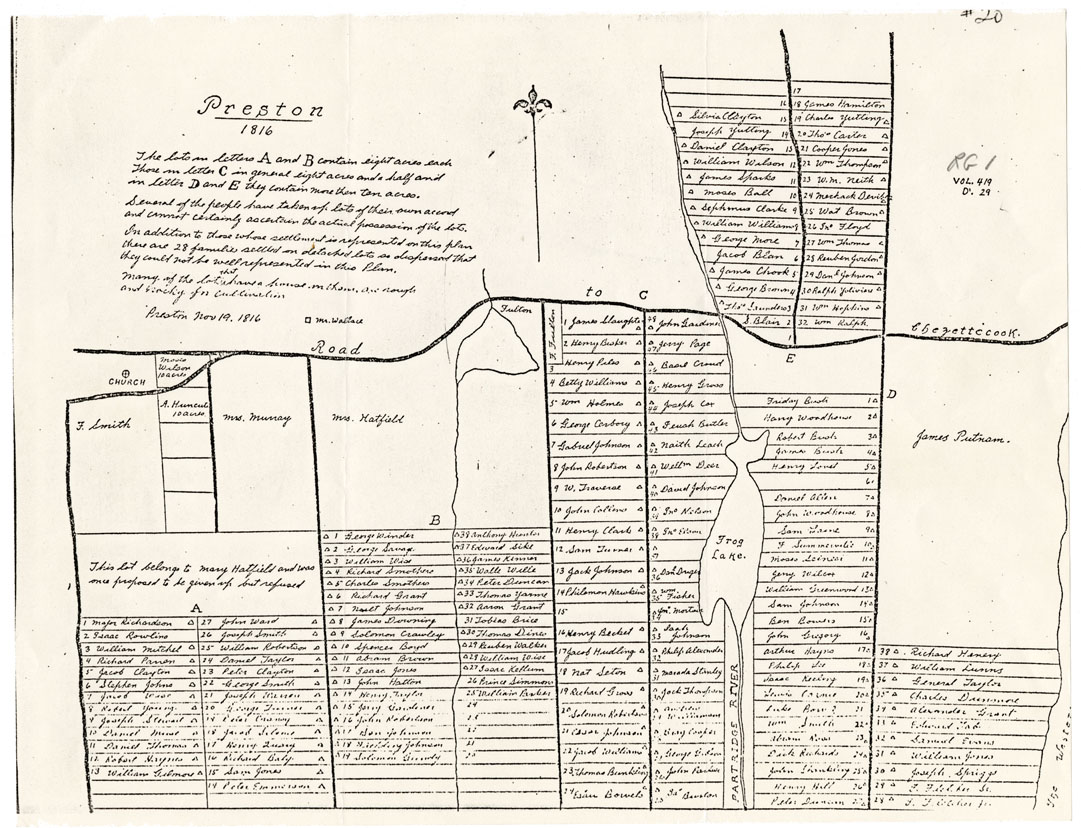 # 20
Preston
1816
The lots in letters A and B contain eight acres each
Those in letter C in general eight acres and a half and
in letter D and E they contain more then ten acres.
Several of the people have taken up lots of their own accord
and cannot certainly ascertain the actual possession of the lots.
In addition to those whose settlement is represented on this plan
there are 28 familie settled on detatched lots so dispersed that
they could not be well represented in this Plan.
Many of the lots that have a house on them, are rough
and
Preston Nov 19. 1816
Mr. Wallace
RG 1
VOL. 419
D. 29
Road
to
Chezettecook.
CHURCH
Moses Wilson 10 acres
A. Huncut 10 acres
F. Smith
Mrs. Murray
Mrs. Hatfield
Fulton
James Putnam.
Frog Lake.
PARTRIDGE RIVER
This lot belongs to Mary Hatfield and was
once proposed to be given up but refused
A
1 Major Richardson
2 Isaac Rowlins
3 William Mitchel
4 Richard Parren
5 Jacob Clayton
6 Stephen Johns
7 Jacob Wise
8 Robert Young
9 Joseph Stewart
10 Daniel
11 Daniel Thomas
12 Robert Haynes
13 William Gilmore
27 John Ward
26 Joseph Smith
25 William Robertson
24 Daniel Taylor
23 Peter Clayton
22 George Smith
21 Joseph
20 George Turner
19 Peter
18 Jacob
17 Henry
16 Richard
15 Sam Jones
14 Peter Emmerson
B
1 George Winder
2 George Savage
3 William Wise
4 Richard Smothers
5 Charles Smothers
6 Richard Grant
7 Johnson
8 James Downing
9 Solomon Crawley
10 Spences Boyd
11 Abram Brown
12 Isaac Jones
13 John Hatton
14 Henry Taylor
15 Gardener
16 John Robertson
17 Ben Johnson
18 Johnson
19 Solomon Gundy
38 Anthony
37 Edward Sike
36 James Kinner
35 Walle Wille
34 Peter Duncan
33 Thomas
32 Aaron Grant
31 Tobias Brice
30 Thomas
29 Reuben Walker
28 William Wise
27 Isaac Kellum
26 Prince Simmons
25 William Barker
24
C
1 James Slaughter
2 Henry Busker
3 Henry Pales
4 Betty Williams
5 Wm Holmes
6 George Carbory
7 Gabriel Johnson
8 John Robertson
9 W. Traverse
10 John Collins
11 Henry Clark
12 Sam Turner
13 Jack Johnson
14 Philemon Hawkins
15
16 Henry Beckel
17 Jacob Hudling
18 Nat Seton
19 Richard Gross
20 Solomon Robertson
21 Cesar Johnson
22 Jacob Williams
23 Thomas Bunkling
24 Esau Bowels
John Gardiner
Jerry Page
Basil Crowd
Henry Gross
Joseph Cox
Butler
Leach
Deer
David Johnson
Jno Nilson
Jno
Danl
Wm Fisher
Jno. Morton
33 Johnson
Philip Alexander
Stanley
Jack Thompson
Williamson
Gray Cooper
George Gibson
John
Jas
E
17
16
18 James Hamilton
Silvia Clayton 15
19 Charles Yutting
Joseph Yutting 14
20 Thos Carter
Daniel Clayton 13
21 Cooper Jones
William Wilson 12
22 Wm Thompson
James Sparks 11
23 W.m. Neith
Moses Ball 10
24 Meshack
Sephmus Clarke 9
25 Wat Brown
William Williams
26 Jno Floyd
George More 7
27 Wm Thomas
Jacob Blan 6
28 Reuben Gordon
James Chook 5
29 Danl Johnson
George Brown 4
30 Ralph
Thos Saunders
31 Wm Hopkins
S. Blair 2
32 Wm Ralph
D
Friday Bush 1
Harry Woodhouse 2
Robert Bush 3
James Bush 4
Henry Lovel 5
6
Daniel Allen 7
John Woodhouse 8
Sam 9
Summerville 10
Moses 11
Jerry Wilcox 12
William Greenwood 13
Sam Johnson 14
Ben Bowers 15
John Gregory 16
Arthur Hayns 17
Philip Lee 18
Isaac Keeling 19
Lewis
Luke
Tom Smith 22
Abram Ross 23
Dick Richards 24
John 25
Henry Hill 26
Peter Duncan
38 Richard Henery
37 William Lunns
36 General Taylor
35 Charles Dunmore
34 Alexander Grant
33 Edward
32 Samuel Evans
31 William Jones
30 Joseph Spriggs
29 F. Fletcher Sr.
28 F. Fletcher Jr.